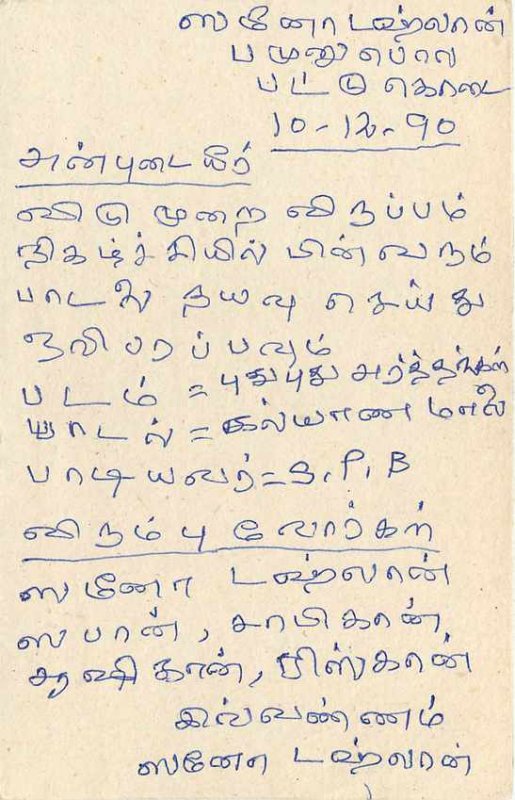 ஸனோ டஹ்லான்
பமுனுபொல
பட்டுகொடை
10-12-90
அன்புடையீர்
விடுமுறை விருப்பம்
நிகழ்ச்சியில் பின்வரும்
பாடலை தயவு செய்து
ஒலிபரப்பவும்
படம் = புதுபுது அர்த்தங்கள்
பாடல் = கல்யாண மாலை
பாடியவர் = S.P.B
விரும்புவோர்கள்
ஸனோ டஹ்லான்
ஸபான், சாமிகான்,
சூஷிகான், பிஸ்கான்
இவ்வண்ணம்
ஸனோ டஹ்லான்